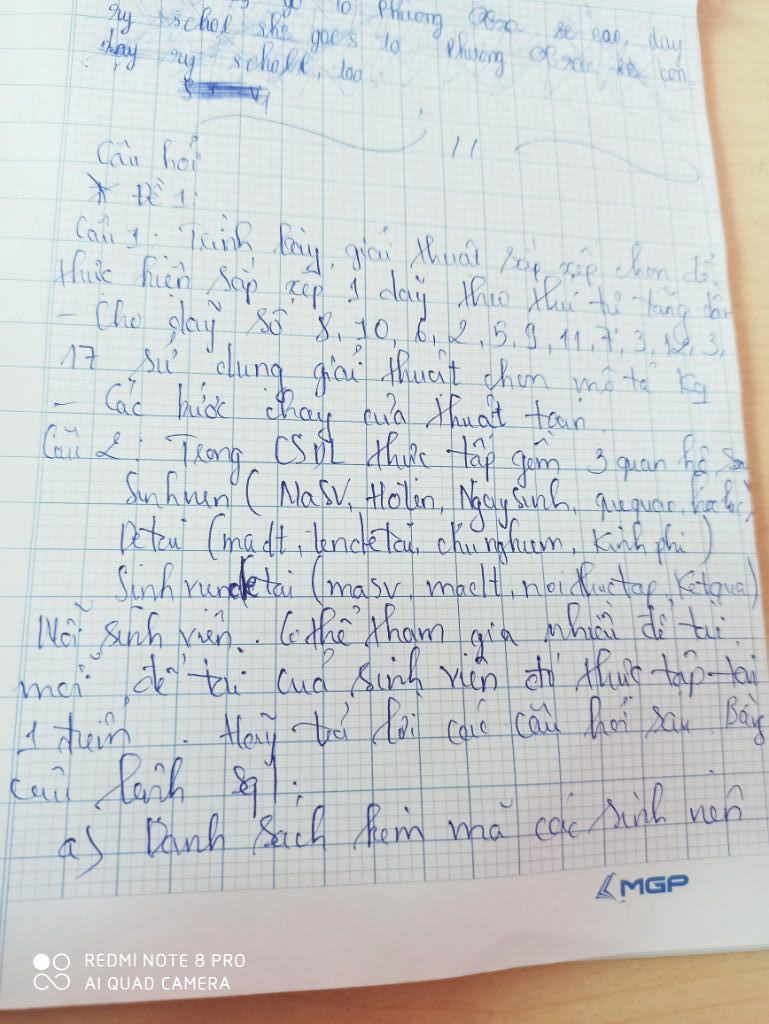 to Phương se cao, day
ry schol she goes to Phương con
hay ry scholl, too
11
Câu hỏi
* Đề 1:
Câu 1: Trình bày giải thuật sắp xếp chọn để
thực hiện sắp xếp 1 dãy theo thứ tự tăng dần
- Cho dãy số 8, 10, 6, 2, 5, 9, 11, 7, 3, 12, 3,
17 sử dụng giải thuật chọn mô tả Kq
- Các bước chạy của thuật toán
Câu 2: Trong CSDL thực tập gồm 3 quan hệ sau
Sinhvien (MaSV, Hoten, Ngaysinh, quequan, hocluc)
Detai (madt, tendetai, chunghiem, Kinhphi)
Sinhviendetai (masv, madt, noithuctap, Ketqua)
Mỗi sinh viên. Có thể tham gia nhiều đề tài.
mỗi đề tài của sinh viên đó thực tập tại
1 điểm. Hãy trả lời các câu hỏi sau Bằng
câu lệnh sql:
a) Danh sách kèm mã các sinh viên
MGP
REDMI NOTE 8 PRO
AI QUAD CAMERA